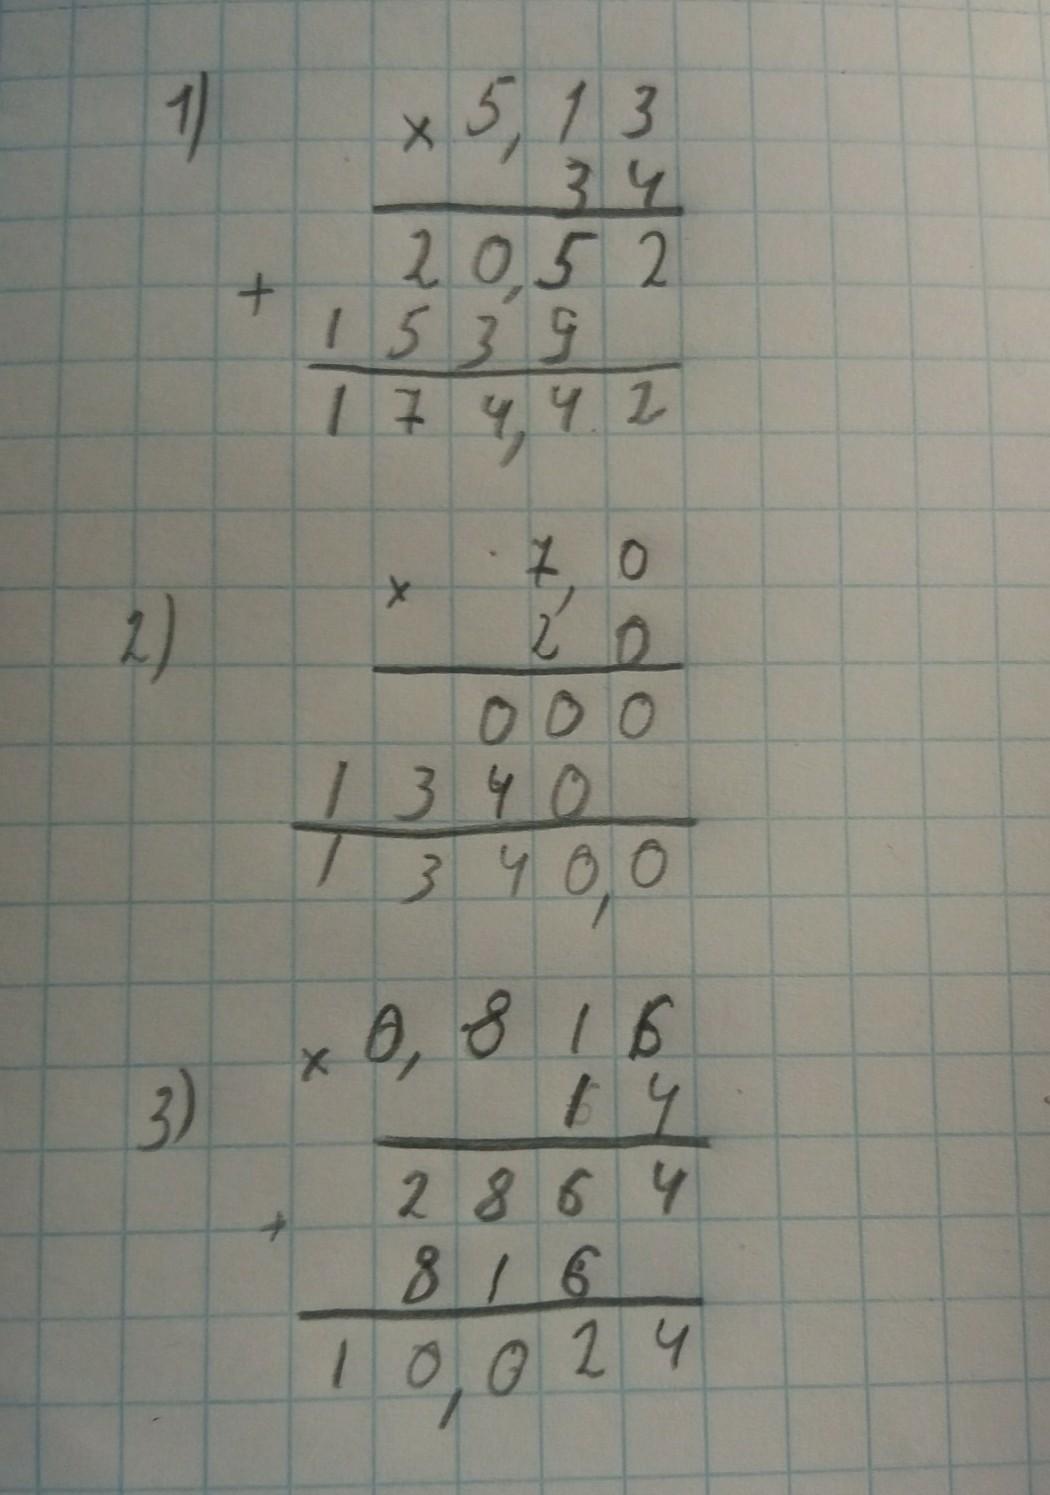 1) × 5,13
34
20,52
+ 1539
174,42
2) × 7,0
20
000
1340
1340,0
3) × 0,816
14
2864
+ 816
10,024